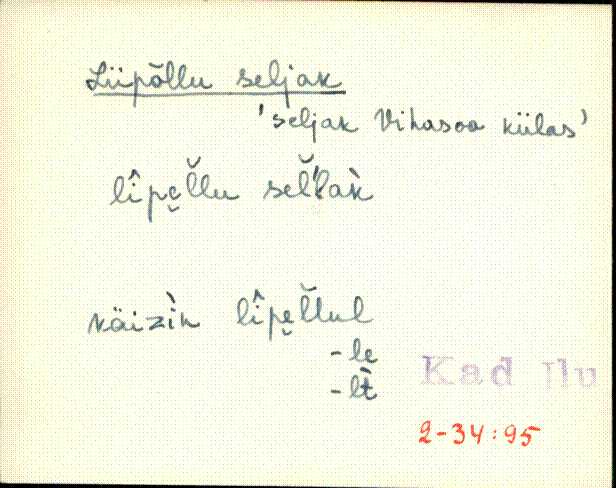 Liipõllu seljak
'seljak Vihasoo külas'
lîpe̮l̆lu sel̆'l̆ak̀
käizìn lîpe̮l̆lul
-le
-lt̀
Kad
2-34:95